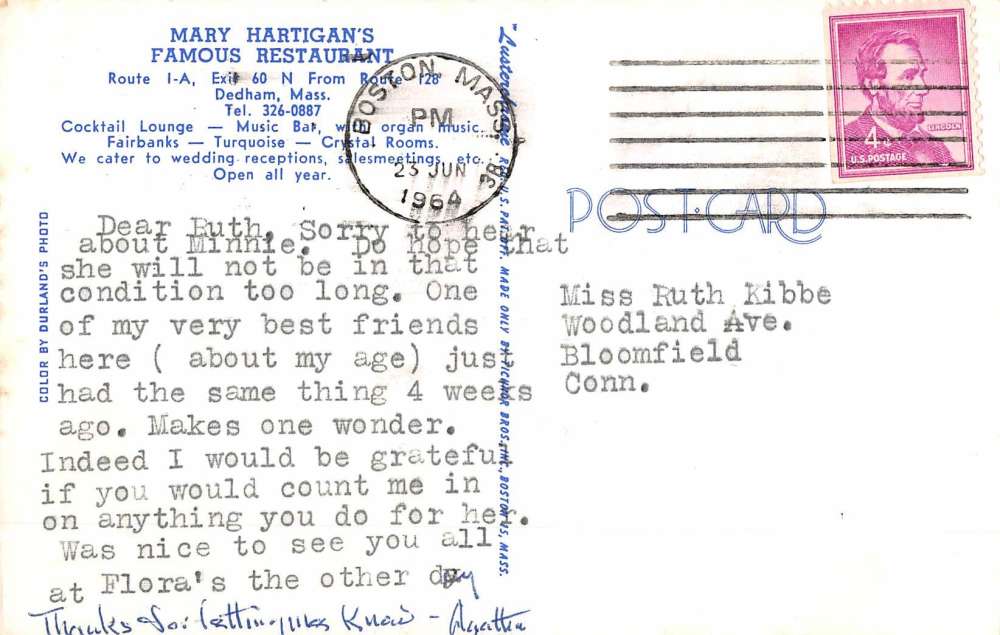 MARY HARTIGAN'S
FAMOUS RESTAURANT
Route 1-A, Exit 60 N From Route 128
Dedham, Mass.
Tel. 326-0887
Cocktail Lounge — Music Bar, with organ music.
Fairbanks — Turquoise — Crystal Rooms.
We cater to wedding receptions, salesmeetings, etc.
Open all year.
COLOR BY DURLAND'S PHOTO
Dear Ruth, Sorry to hear
about Minnie. Do hope that
she will not be in that
condition too long. One
of my very best friends
here ( about my age) just
had the same thing 4 weeks
ago. Makes one wonder.
Indeed I would be grateful
if you would count me in
on anything you do for her.
Was nice to see you all
at Flora's the other day
Thanks for letting me know - Agatha
"Lusterchrome" REG. U.S. PAT. OFF. MADE ONLY BY TICHNOR BROS., INC., BOSTON 15, MASS.
BOSTON, MASS.
PM
23 JUN
1964
38
LINCOLN
4¢
U.S. POSTAGE
POST CARD
Miss Ruth Kibbe
Woodland Ave.
Bloomfield
Conn.